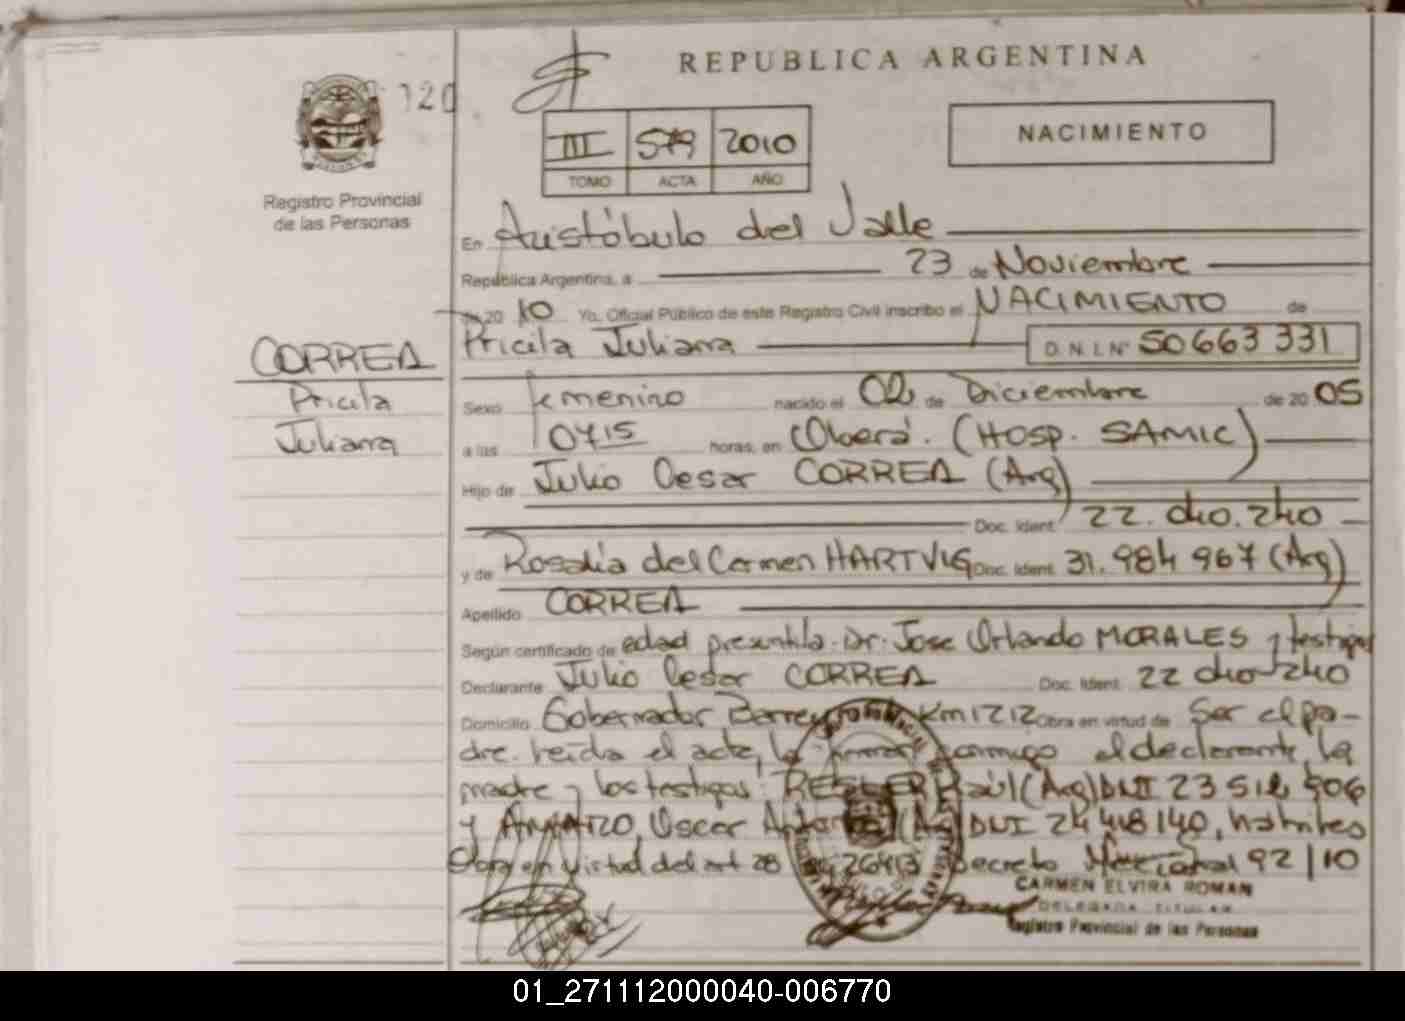 REPUBLICA ARGENTINA
120
III 579 2010
TOMO ACTA AÑO
NACIMIENTO
Registro Provincial
de las Personas
En Aristóbulo del Valle
República Argentina, a 23 de Noviembre
de 20 10 Yo, Oficial Público de este Registro Civil inscribo el NACIMIENTO de
Pricila Juliana D.N.I. Nº 50 663 331
CORREA
Pricila
Juliana
Sexo femenino nacido el 02 de Diciembre de 20 05
a las 0715 horas, en Oberá. (HOSP. SAMIC)
Hijo de Julio Cesar CORREA (Arg)
Doc. Ident. 22.040.240
y de Rosalia del Carmen HARTVIG Doc. Ident. 31.984 967 (Arg)
Apellido CORREA
Según certificado de edad presuntiva. Dr. Jose Orlando MORALES y testigos
Declarante Julio Cesar CORREA Doc. Ident. 22 040 240
Domicilio Gobernador Barreyro Km 1212 Obra en virtud de Ser el pa-
dre. Leída el acta, la firman conmigo el declarante, la
madre y los testigos: Raúl (Arg) DNI 23 512 506
y Oscar (Arg) DNI 24 418 140, hábiles
Obra en virtud del art 28 26413 Decreto Nacional 92/10
CARMEN ELVIRA ROMAN
DELEGADA TITULAR
Registro Provincial de las Personas
01_271112000040-006770